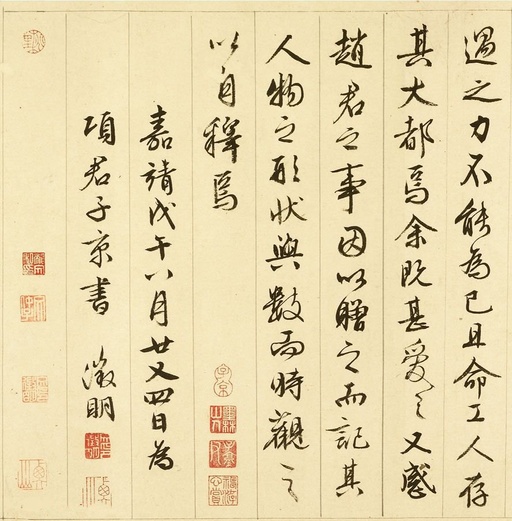 遇之力不能為已且命工人存
其大都焉余既甚愛之又感
趙君之事因以贈之而記其
人物之形狀與數而時觀之
以自釋焉
嘉靖戊午八月廿又四日為
項君子京書 徵明
子京